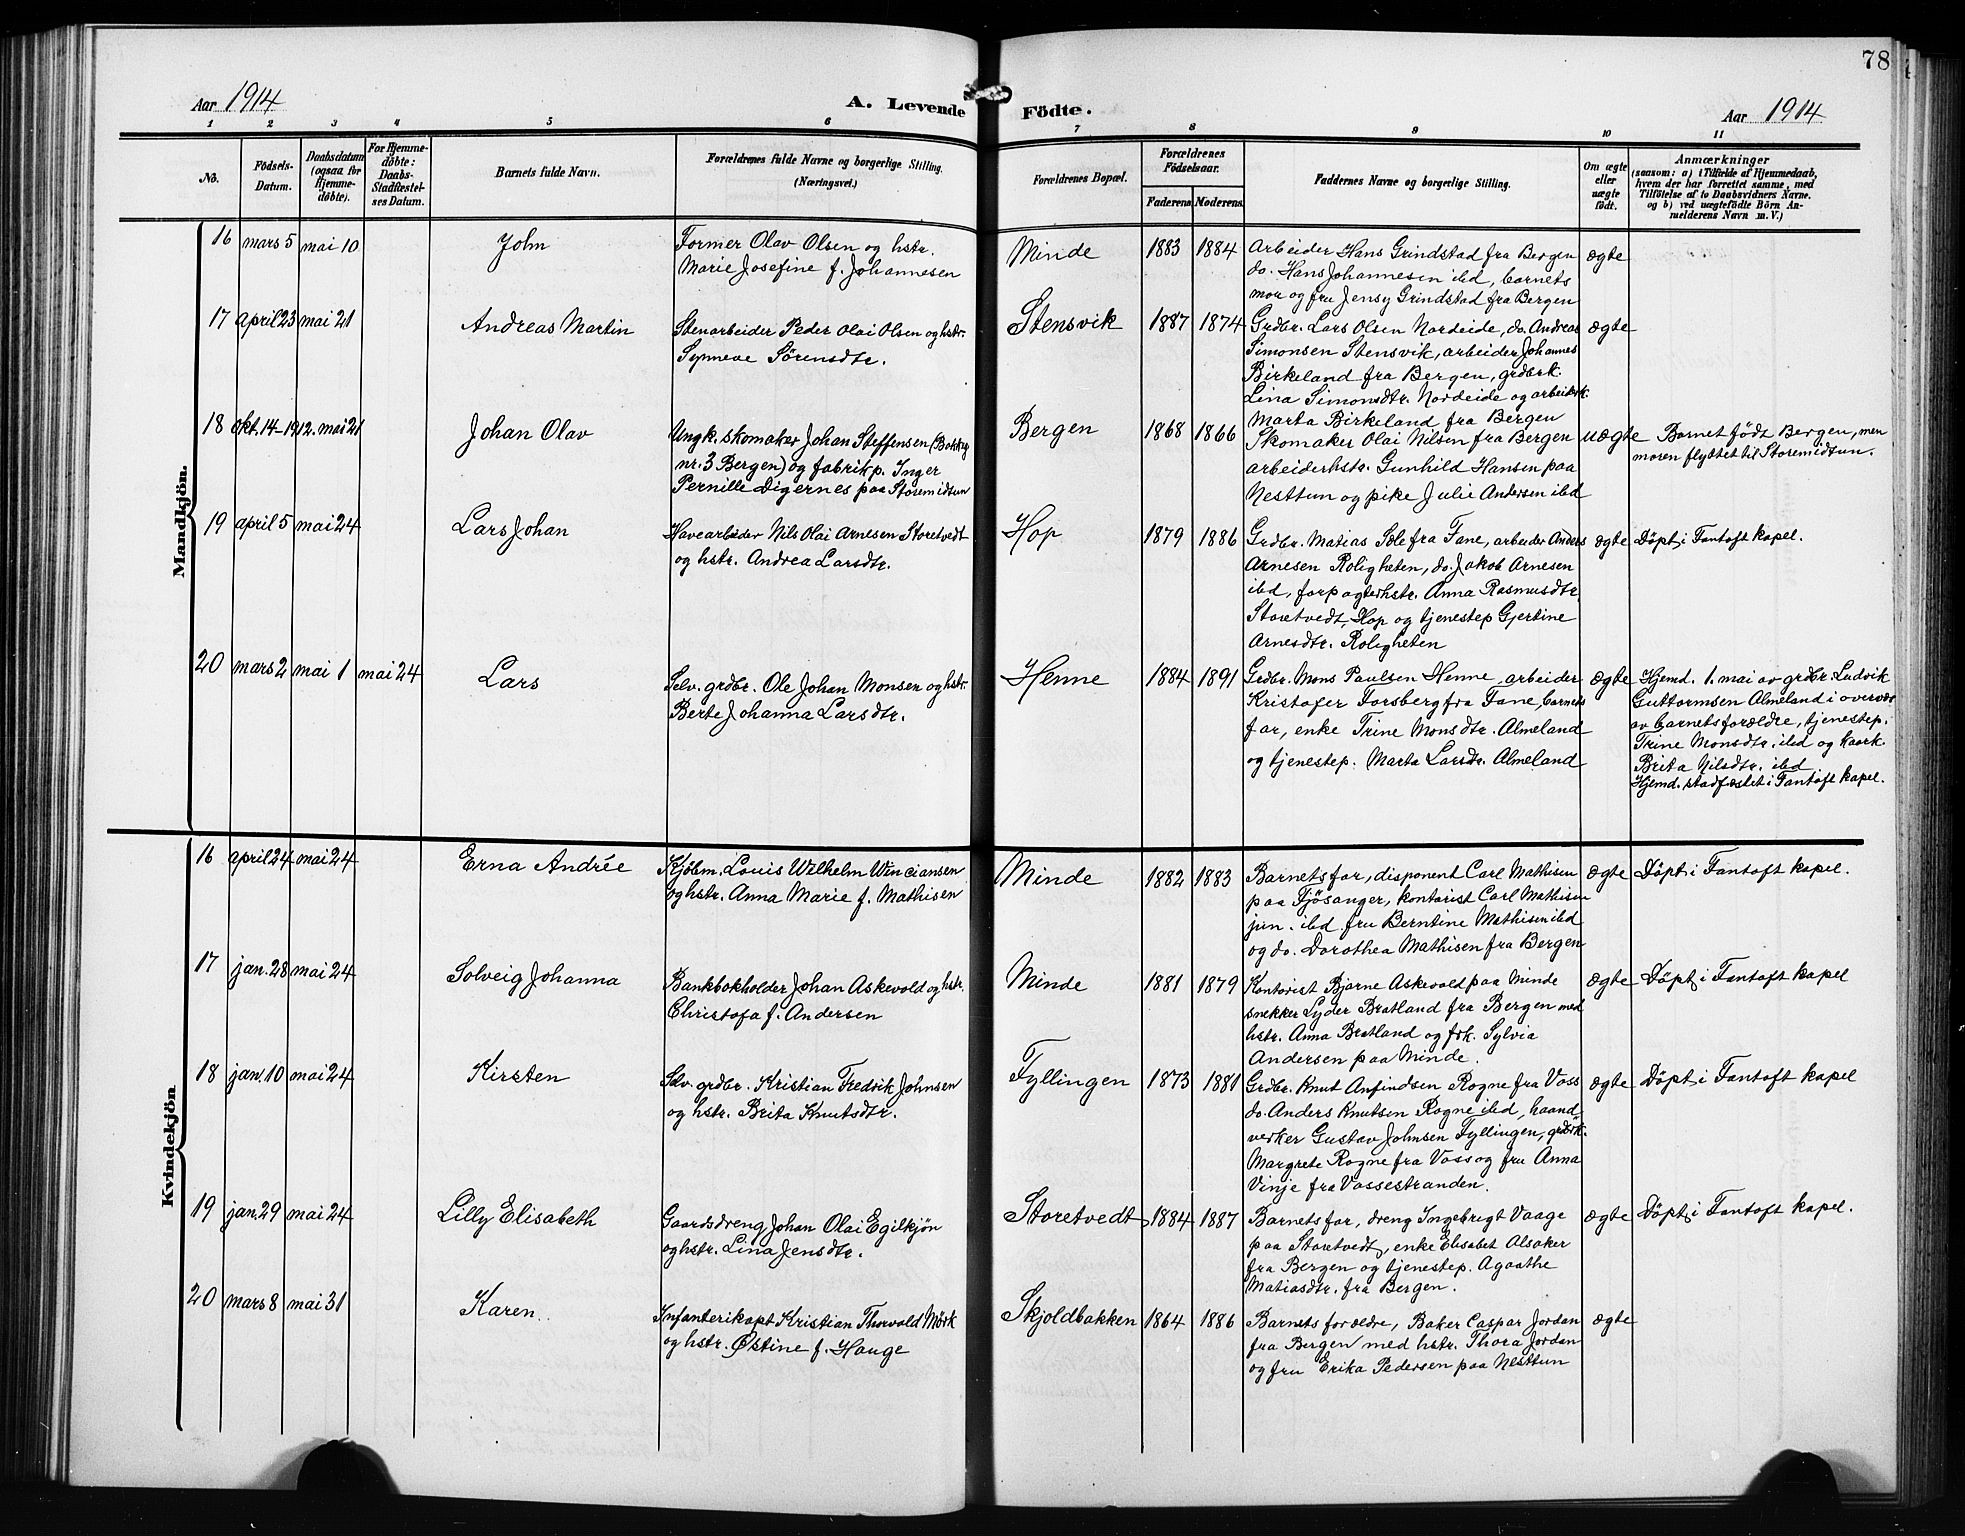 78
Aar 1914
A. Levende Födte.
Aar 1914
1 2 3 4 5 6 7 8 9 10 11
No.
Födsels-
Datum.
Daabsdatum
(ogsaa for
Hjemme-
döbte).
For Hjemme-
döbte:
Daabs-
Stadfæstel-
ses Datum.
Barnets fulde Navn.
Forældrenes fulde Navne og borgerlige Stilling.
(Næringsvei.)
Forældrenes Bopæl.
Forældrenes
Födselsaar.
Faderens Moderens
Faddernes Navne og borgerlige Stilling.
Om ægte
eller
uægte
födt.
Anmærkninger
(saasom: a) i Tilfælde af Hjemmedaab,
hvem der har forrettet samme, med
Tilföielse af to Daabsvidners Navne.
og b) ved uægtefödte Börn An-
melderens Navn m. V.)
Mandkjön.
16 mars 5 mai 10
John
Former Olav Olsen og hstr.
Marie Josefine f. Johannesen
Minde
1883 1884
Arbeider Hans Grindstad fra Bergen
do. Hans Johannesen ibd, barnets
mor og fru Jensy Grindstad fra Bergen
ægte
17 april 23 mai 21
Andreas Martin
Stenarbeider Peder Olai Olsen og hstr.
Synneve Sörensdtr.
Stensvik
1887 1874
Grdbr. Lars Olsen Nordeide, do. Andreas
Simonsen Stensvik, arbeider Johannes
Birkeland fra Bergen, grdbrk.
Lina Simonsdtr. Nordeide og arbeiderk.
Marta Birkeland fra Bergen
ægte
18 okt. 14-1912. mai 21
Johan Olav
Ungk. skomaker Johan Steffensen
nr. 3 Bergen) og fabrikp. Inger
Pernille Digernes paa Storemidtun
Bergen
1868 1866
Skomaker Olai Nilsen fra Bergen
arbeiderhstr. Gunhild Hansen paa
Nesttun og pike Julie Andersen ibd
uægte
Barnet födt Bergen, men
moren flyttet til Storemidtun.
19 april 5 mai 24
Lars Johan
Havearbeider Nils Olai Arnesen Storetvedt
og hstr. Andrea Larsdtr.
Hop
1879 1886
Grdbr. Matias Sæle fra Fane, arbeider Anders
Arnesen Roligheten, do. Jakob Arnesen
ibd, forpagterhstr. Anna Rasmusdtr.
Storetvedt, Hop og tjenestep Gjertine
Arnesdtr. Roligheten
ægte
Döpt i Fantoft kapel.
20 mars 2 mai 1 mai 24
Lars
Selv. grdbr. Ole Johan Monsen og hstr.
Berte Johanna Larsdtr.
Henne
1884 1891
Grdbr. Mons Paulsen Henne, arbeider
Kristofer Forsberg fra Fane, barnets
far, enke Trine Monsdtr. Almeland
og tjenestep. Marta Larsdr. Almeland
ægte
Hjemd. 1. mai av grdbr. Ludvik
Guttormsen Almeland i overvær
av barnets forældre, tjenestep.
Trine Monsdtr. ibd og kaark.
Brita Nilsdtr. ibd
Hjemd. stadfæstet i Fantoft kapel.
Kvindekjön
16 april 24 mai 24
Erna Andrée
Kjöbm. Louis Wilhelm Winciansen
og hstr. Anna Marie f. Mathisen
Minde
1882 1883
Barnets far, disponent Carl Mathisen
paa Fjösanger, kontorist Carl Mathisen
jun. ibd fru Berntine Mathisen ibd
og do. Dorothea Mathisen fra Bergen
ægte
Döpt i Fantoft kapel.
17 jan. 28 mai 24
Solveig Johanna
Bankbokholder Johan Askevold og hstr.
Christofa f. Andersen
Minde
1881 1879
Kontorist Bjarne Askevold paa Minde
snekker Lyder Bratland fra Bergen med
hstr. Anna Bratland og frk. Sylvia
Andersen paa Minde.
ægte
Döpt i Fantoft kapel
18 jan. 10 mai 24
Kirsten
Selv. grdbr. Kristian Fredrik Johnsen
og hstr. Brita Knutsdtr.
Fyllingen
1873 1881
Grdbr. Knut Anfindsen Rogne fra Voss
do. Anders Knutsen Rogne ibd, haand-
verker Gustav Johnsen Fyllingen, grdbrk.
Margrete Rogne fra Voss og fru Anna
Vinje fra Vossestranden.
ægte
Döpt i Fantoft kapel
19 jan. 29 mai 24
Lilly Elisabeth
Gaardsdreng Johan Olai Egilkjön
og hstr. Lina Jensdtr.
Storetvedt
1884 1887
Barnets far, dreng Ingebrigt Vaage
paa Storetvedt, enke Elisabet Alsaker
fra Bergen og tjenestep. Agaathe
Matiasdtr. fra Bergen.
ægte
Döpt i Fantoft kapel.
20 mars 8 mai 31
Karen
Infanterikapt Kristian Thorvald Mörk
og hstr. Østine f. Hauge
Skjoldbakken
1864 1886
Barnets forældre, Baker Caspar Jordan
fra Bergen med hstr. Thora Jordan
og fru Erika Pedersen paa Nesttun
ægte